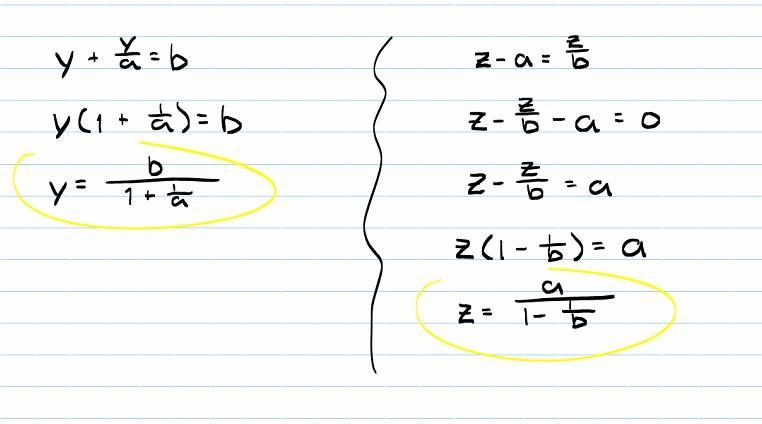 y + y/a = b
y(1 + 1/a) = b
y = b/(1 + 1/a)
z - a = z/b
z - z/b - a = 0
z - z/b = a
z(1 - 1/b) = a
z = a/(1 - 1/b)